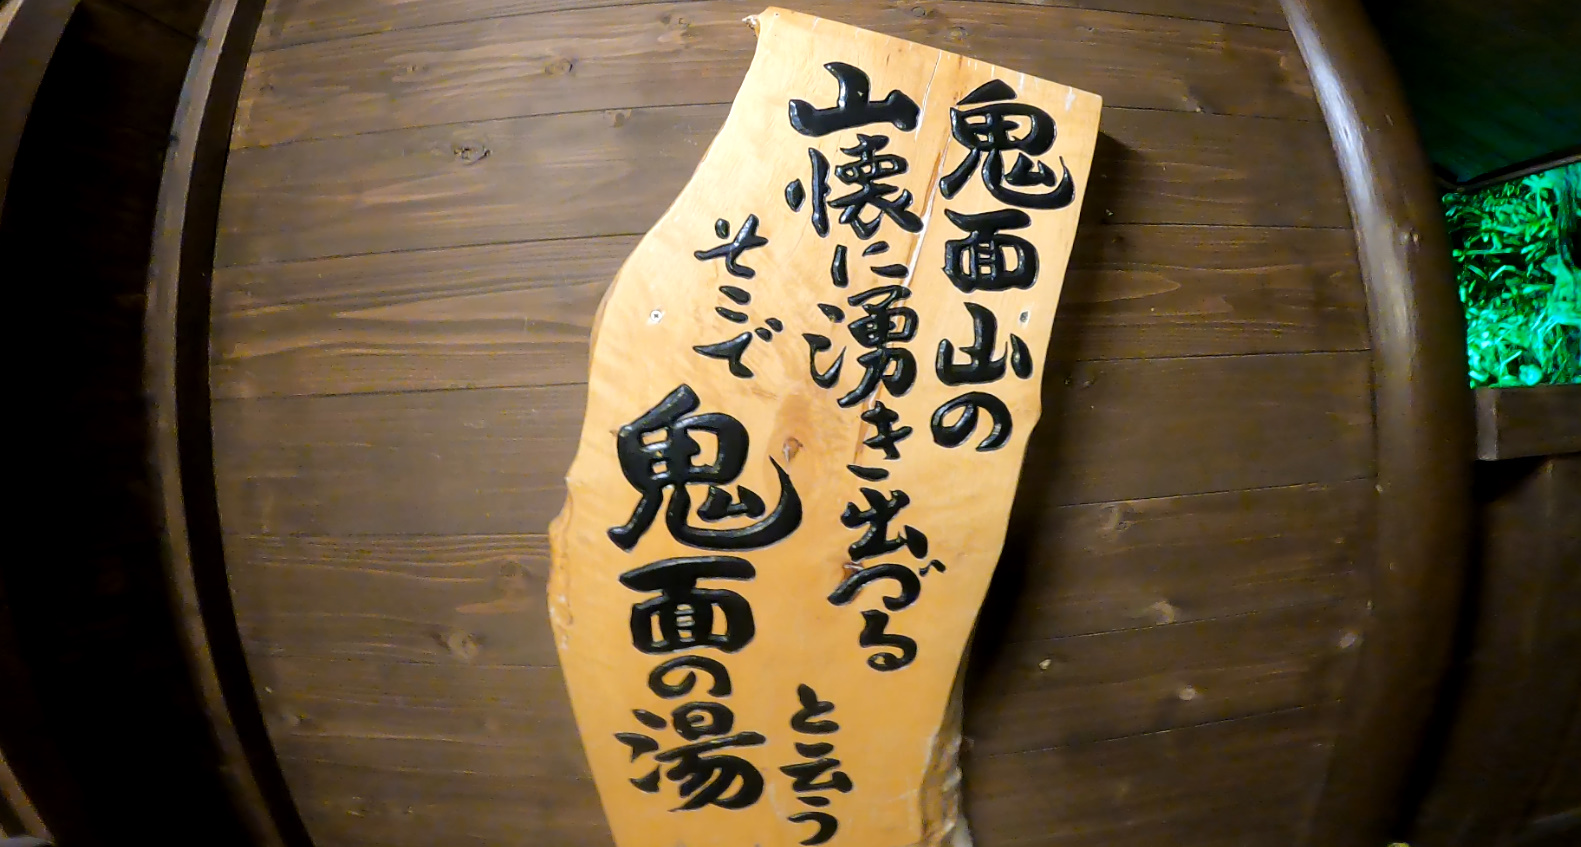 鬼面山の
山懐に湧き出づる
と云う
そこで
鬼面の湯